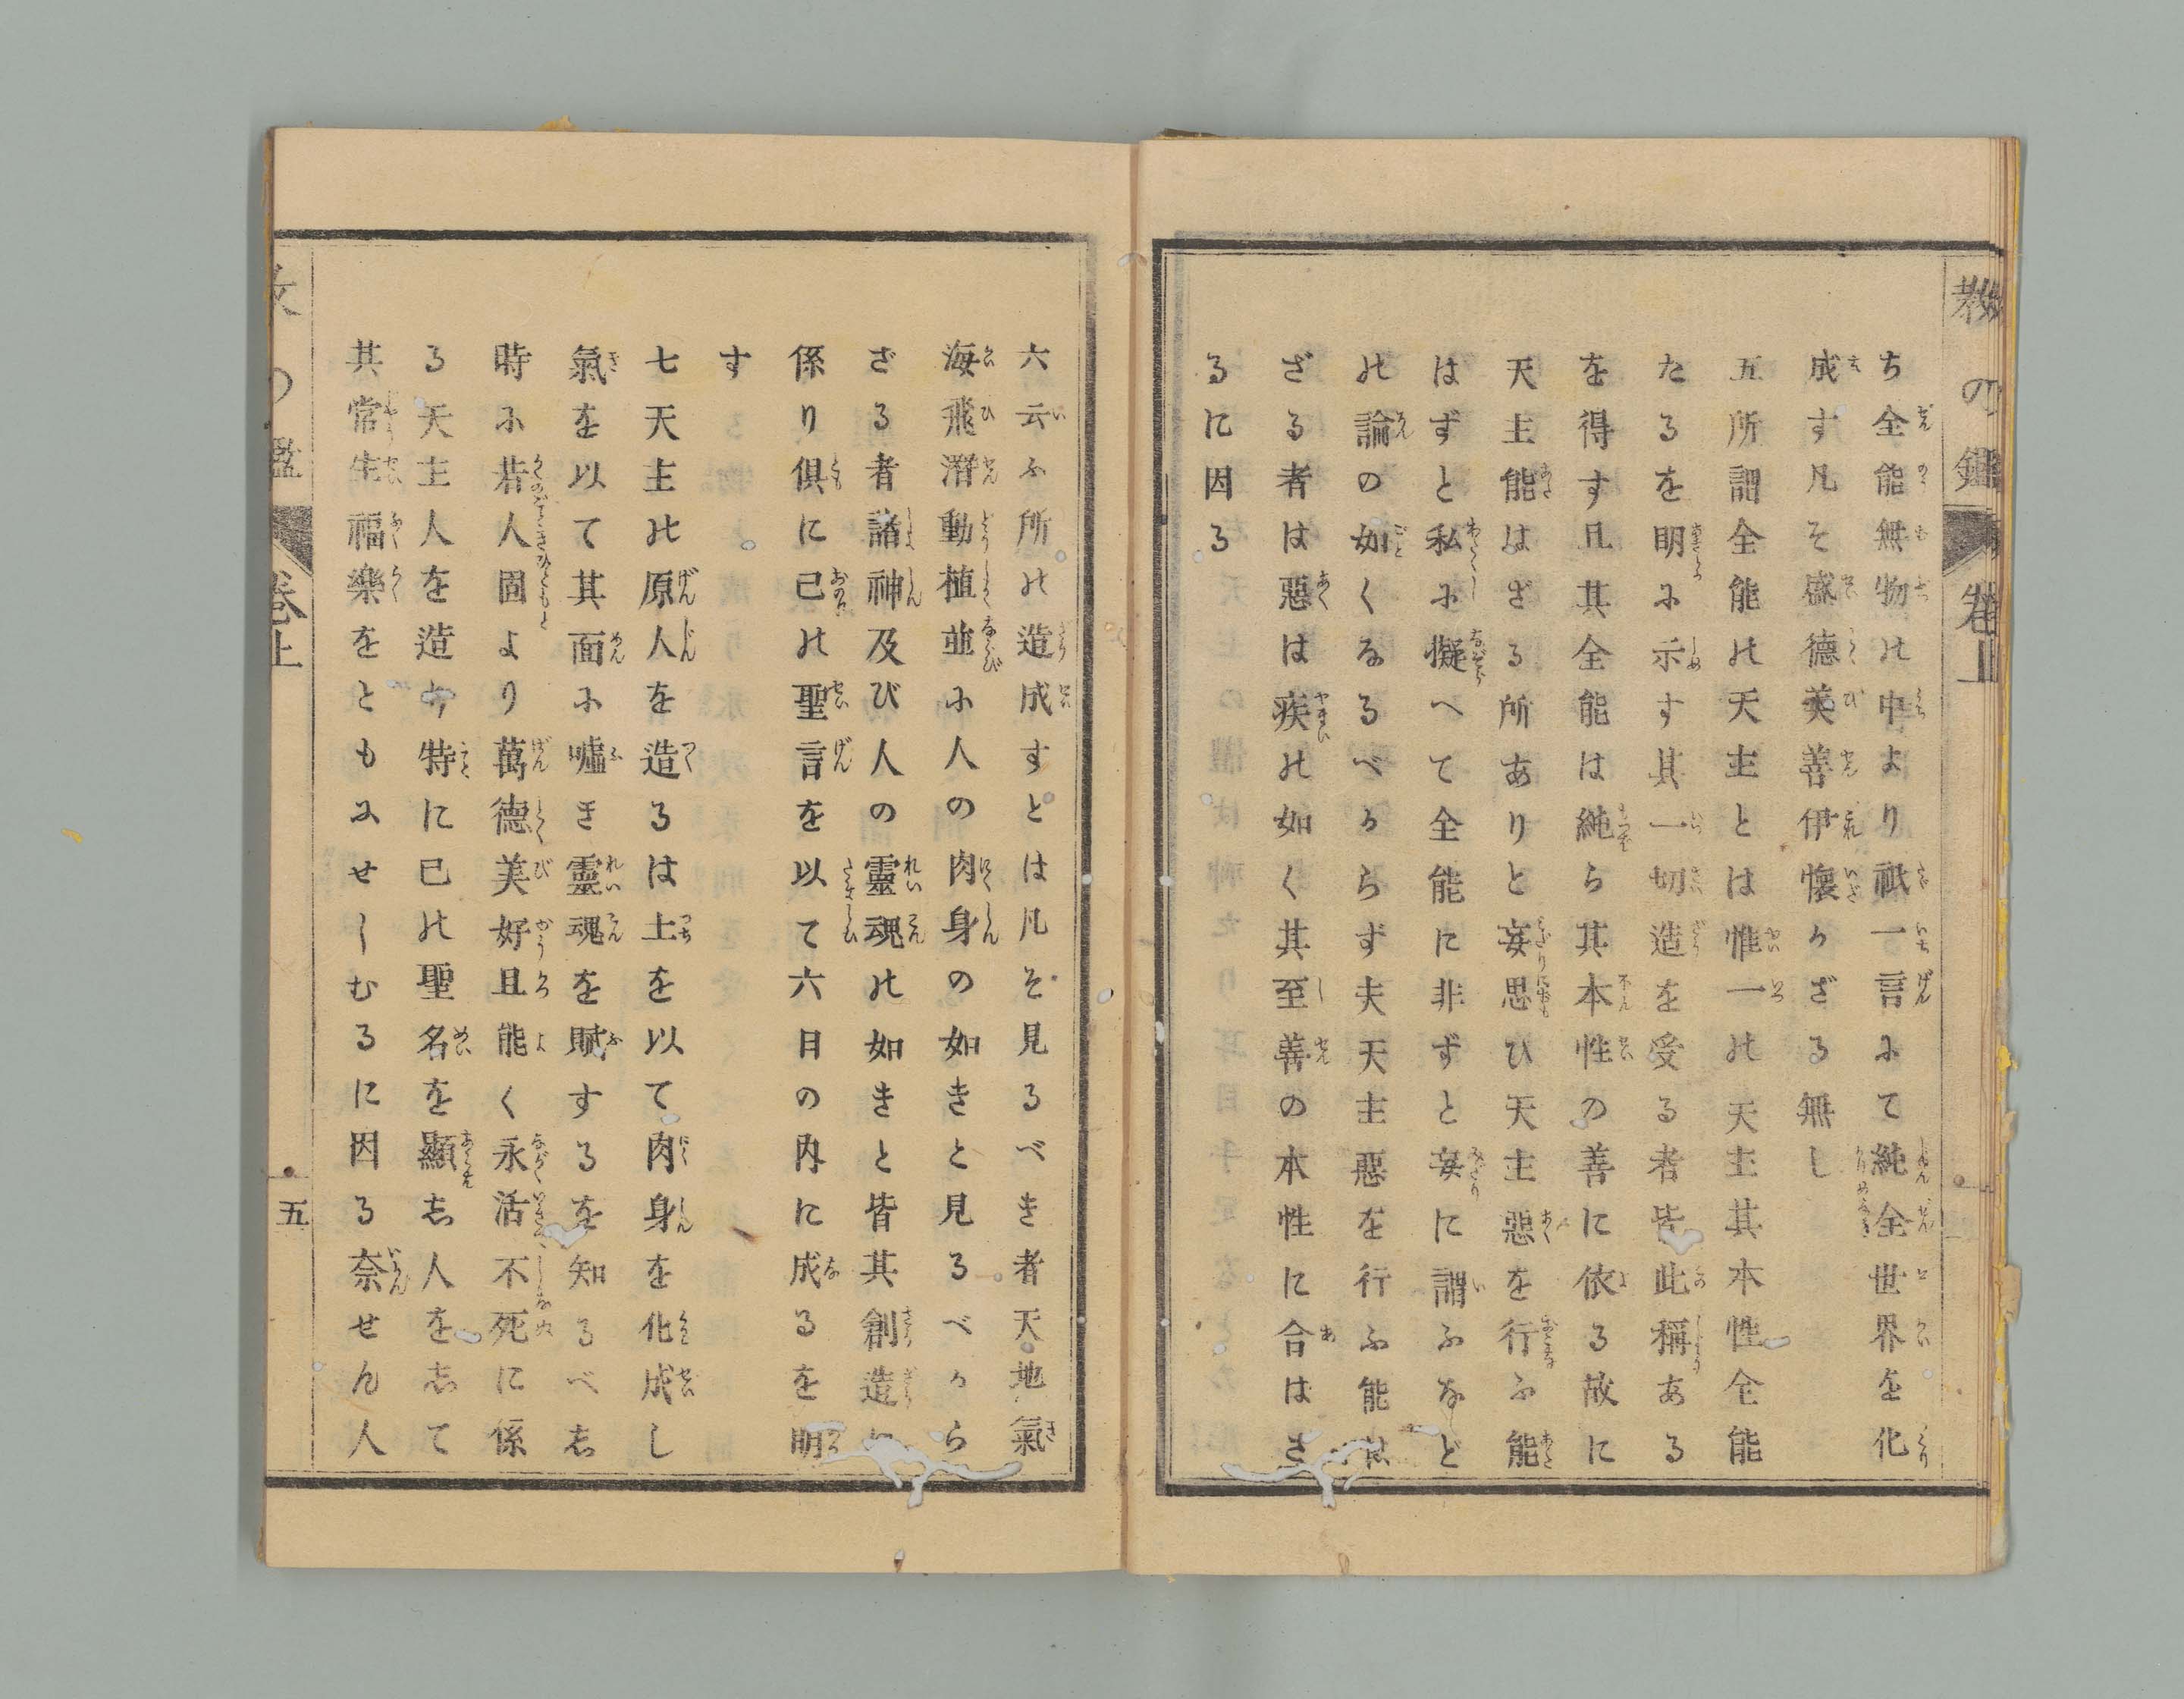 教の鑑 卷上
ち全能無物の中より祇一言にて純全世界を化
成す凡そ盛德美善伊懷かざる無し
五所謂全能の天主とは惟一の天主其本性全能
たるを明に示す其一切造を受る者皆此稱ある
を得す且其全能は純ら其本性の善に依る故に
天主能はざる所ありと妄思ひ天主惡を行ふ能
はずと私に擬へて全能に非ずと妄に謂ふなど
の論の如くなるべからず夫天主惡を行ふ能は
ざる者は惡は疾の如く其至善の本性に合はざ
るに因る
六云ふ所の造成すとは凡そ見るべき者天地氣
海飛潛動植並に人の肉身の如きと見るべから
ざる者諸神及び人の靈魂の如きと皆其創造に
係り俱に己の聖言を以て六日の内に成るを明
す
七天主の原人を造るは土を以て肉身を化成し
氣を以て其面に噓き靈魂を賦するを知るべし
時に若人固より萬德美好且能く永活不死に係
る天主人を造り特に己の聖名を顯し人をして
其常生福樂をともにせしむるに因る奈せん人
教の鑑 卷上 五